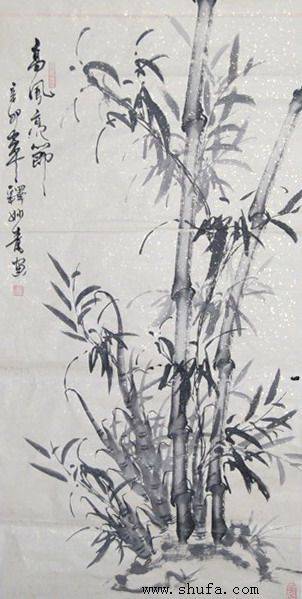 高风亮節
辛卯年释妙青写
www.shufa.com